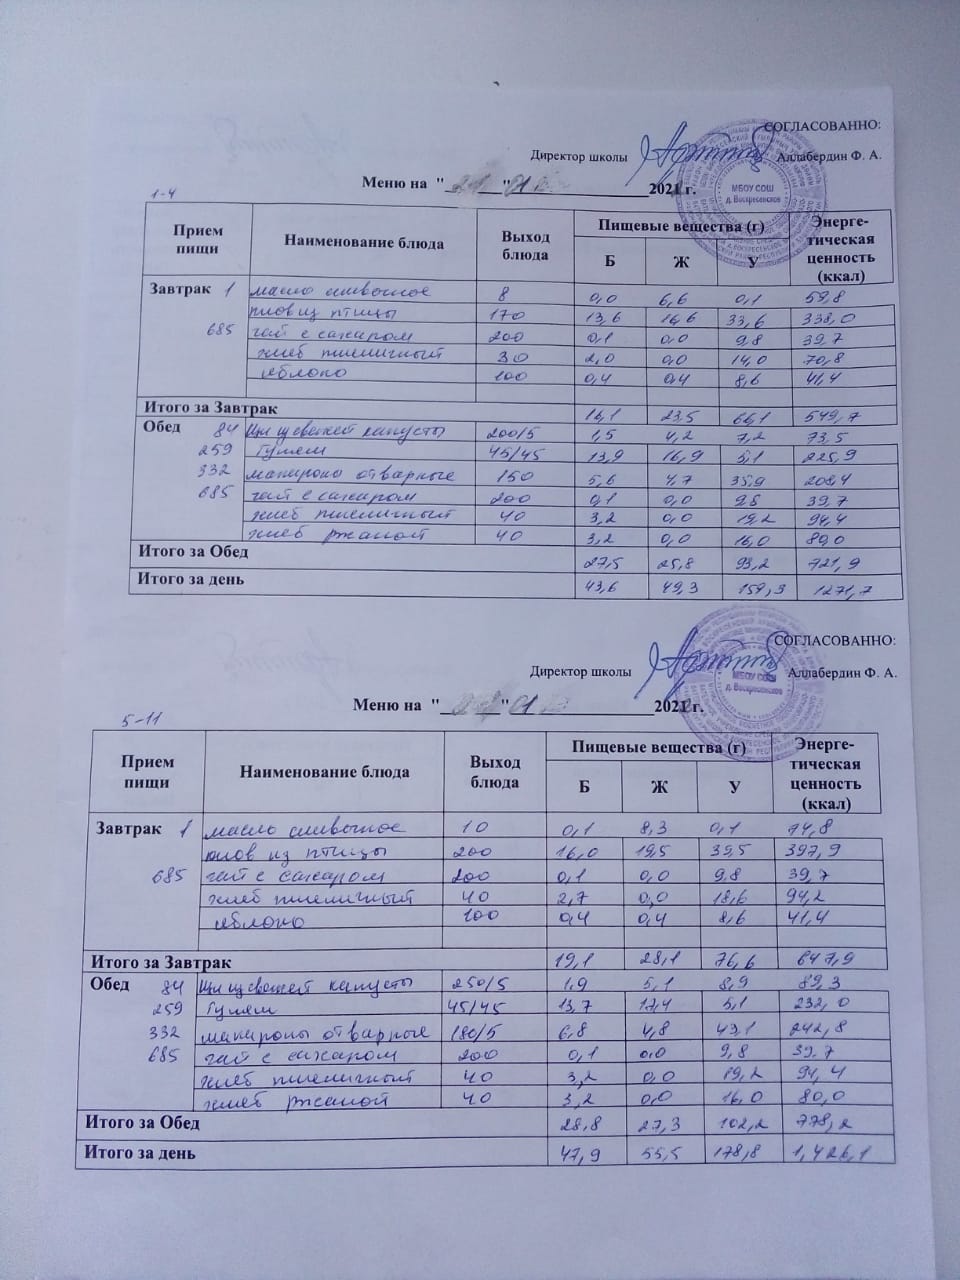 СОГЛАСОВАННО:
Директор школы Аллабердин Ф. А.
Меню на " " 01 2021 г.
МБОУ СОШ
д. Воскресенское
1-4
Прием пищи Наименование блюда Выход блюда Пищевые вещества (г) Энерге-тическая ценность (ккал)
Б Ж У
Завтрак 1 масло сливочное 8 0,0 6,6 0,1 59,8
плов из птицы 170 13,6 16,6 33,6 338,0
685 чай с сахаром 200 0,1 0,0 9,8 39,7
хлеб пшеничный 30 2,0 0,0 14,0 70,8
яблоко 100 0,4 0,4 8,6 41,4
Итого за Завтрак 16,1 23,5 66,1 549,7
Обед 84 Щи из свежей капусты 200/5 1,5 4,2 7,2 73,5
259 Гуляш 45/45 13,9 16,9 5,1 225,9
332 макароны отварные 150 5,6 4,7 35,9 208,4
685 чай с сахаром 200 0,1 0,0 9,8 39,7
хлеб пшеничный 40 3,2 0,0 19,2 94,4
хлеб ржаной 40 3,2 0,0 16,0 80,0
Итого за Обед 27,5 25,8 93,2 721,9
Итого за день 43,6 49,3 159,3 1271,7
СОГЛАСОВАННО:
Директор школы Аллабердин Ф. А.
Меню на " " 01 2021 г.
МБОУ СОШ
д. Воскресенское
5-11
Прием пищи Наименование блюда Выход блюда Пищевые вещества (г) Энерге-тическая ценность (ккал)
Б Ж У
Завтрак 1 масло сливочное 10 0,1 8,3 0,1 74,8
плов из птицы 200 16,0 19,5 39,5 397,9
685 чай с сахаром 200 0,1 0,0 9,8 39,7
хлеб пшеничный 40 2,7 0,0 18,6 94,2
яблоко 100 0,4 0,4 8,6 41,4
Итого за Завтрак 19,1 28,1 76,6 647,9
Обед 84 Щи из свежей капусты 250/5 1,9 5,1 8,9 89,3
259 Гуляш 45/45 13,7 17,4 5,1 232,0
332 макароны отварные 180/5 6,8 4,8 43,1 242,8
685 чай с сахаром 200 0,1 0,0 9,8 39,7
хлеб пшеничный 40 3,2 0,0 19,2 94,4
хлеб ржаной 40 3,2 0,0 16,0 80,0
Итого за Обед 28,8 27,3 102,2 778,2
Итого за день 47,9 55,5 178,8 1,426,1